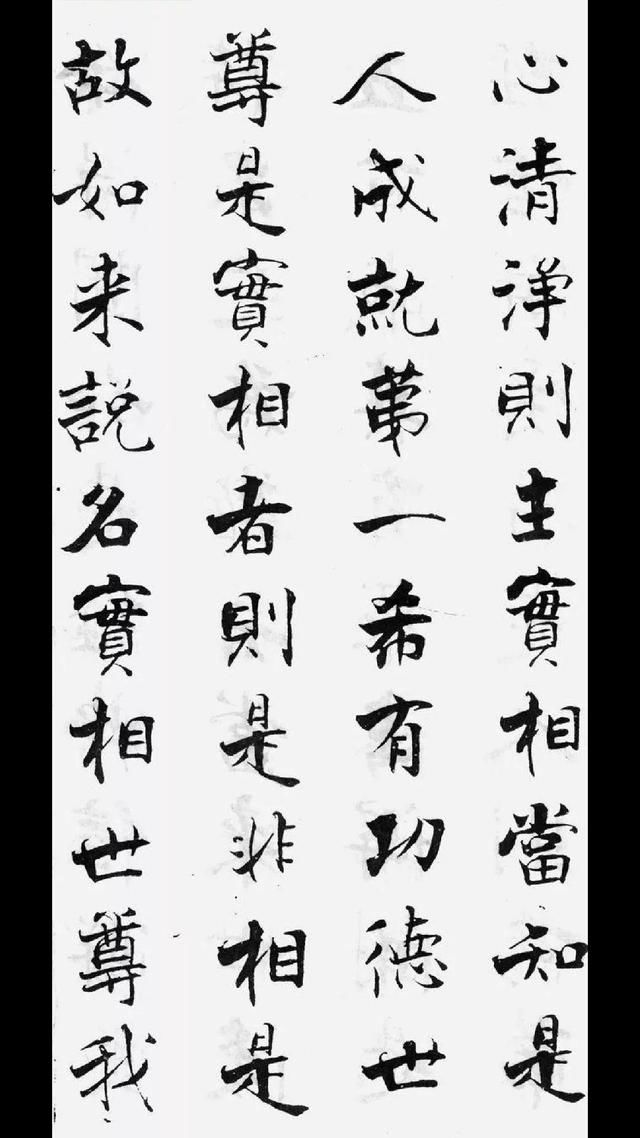 心清淨則生實相當知是
人成就第一希有功德世
尊是實相者則是非相是
故如来説名實相世尊我